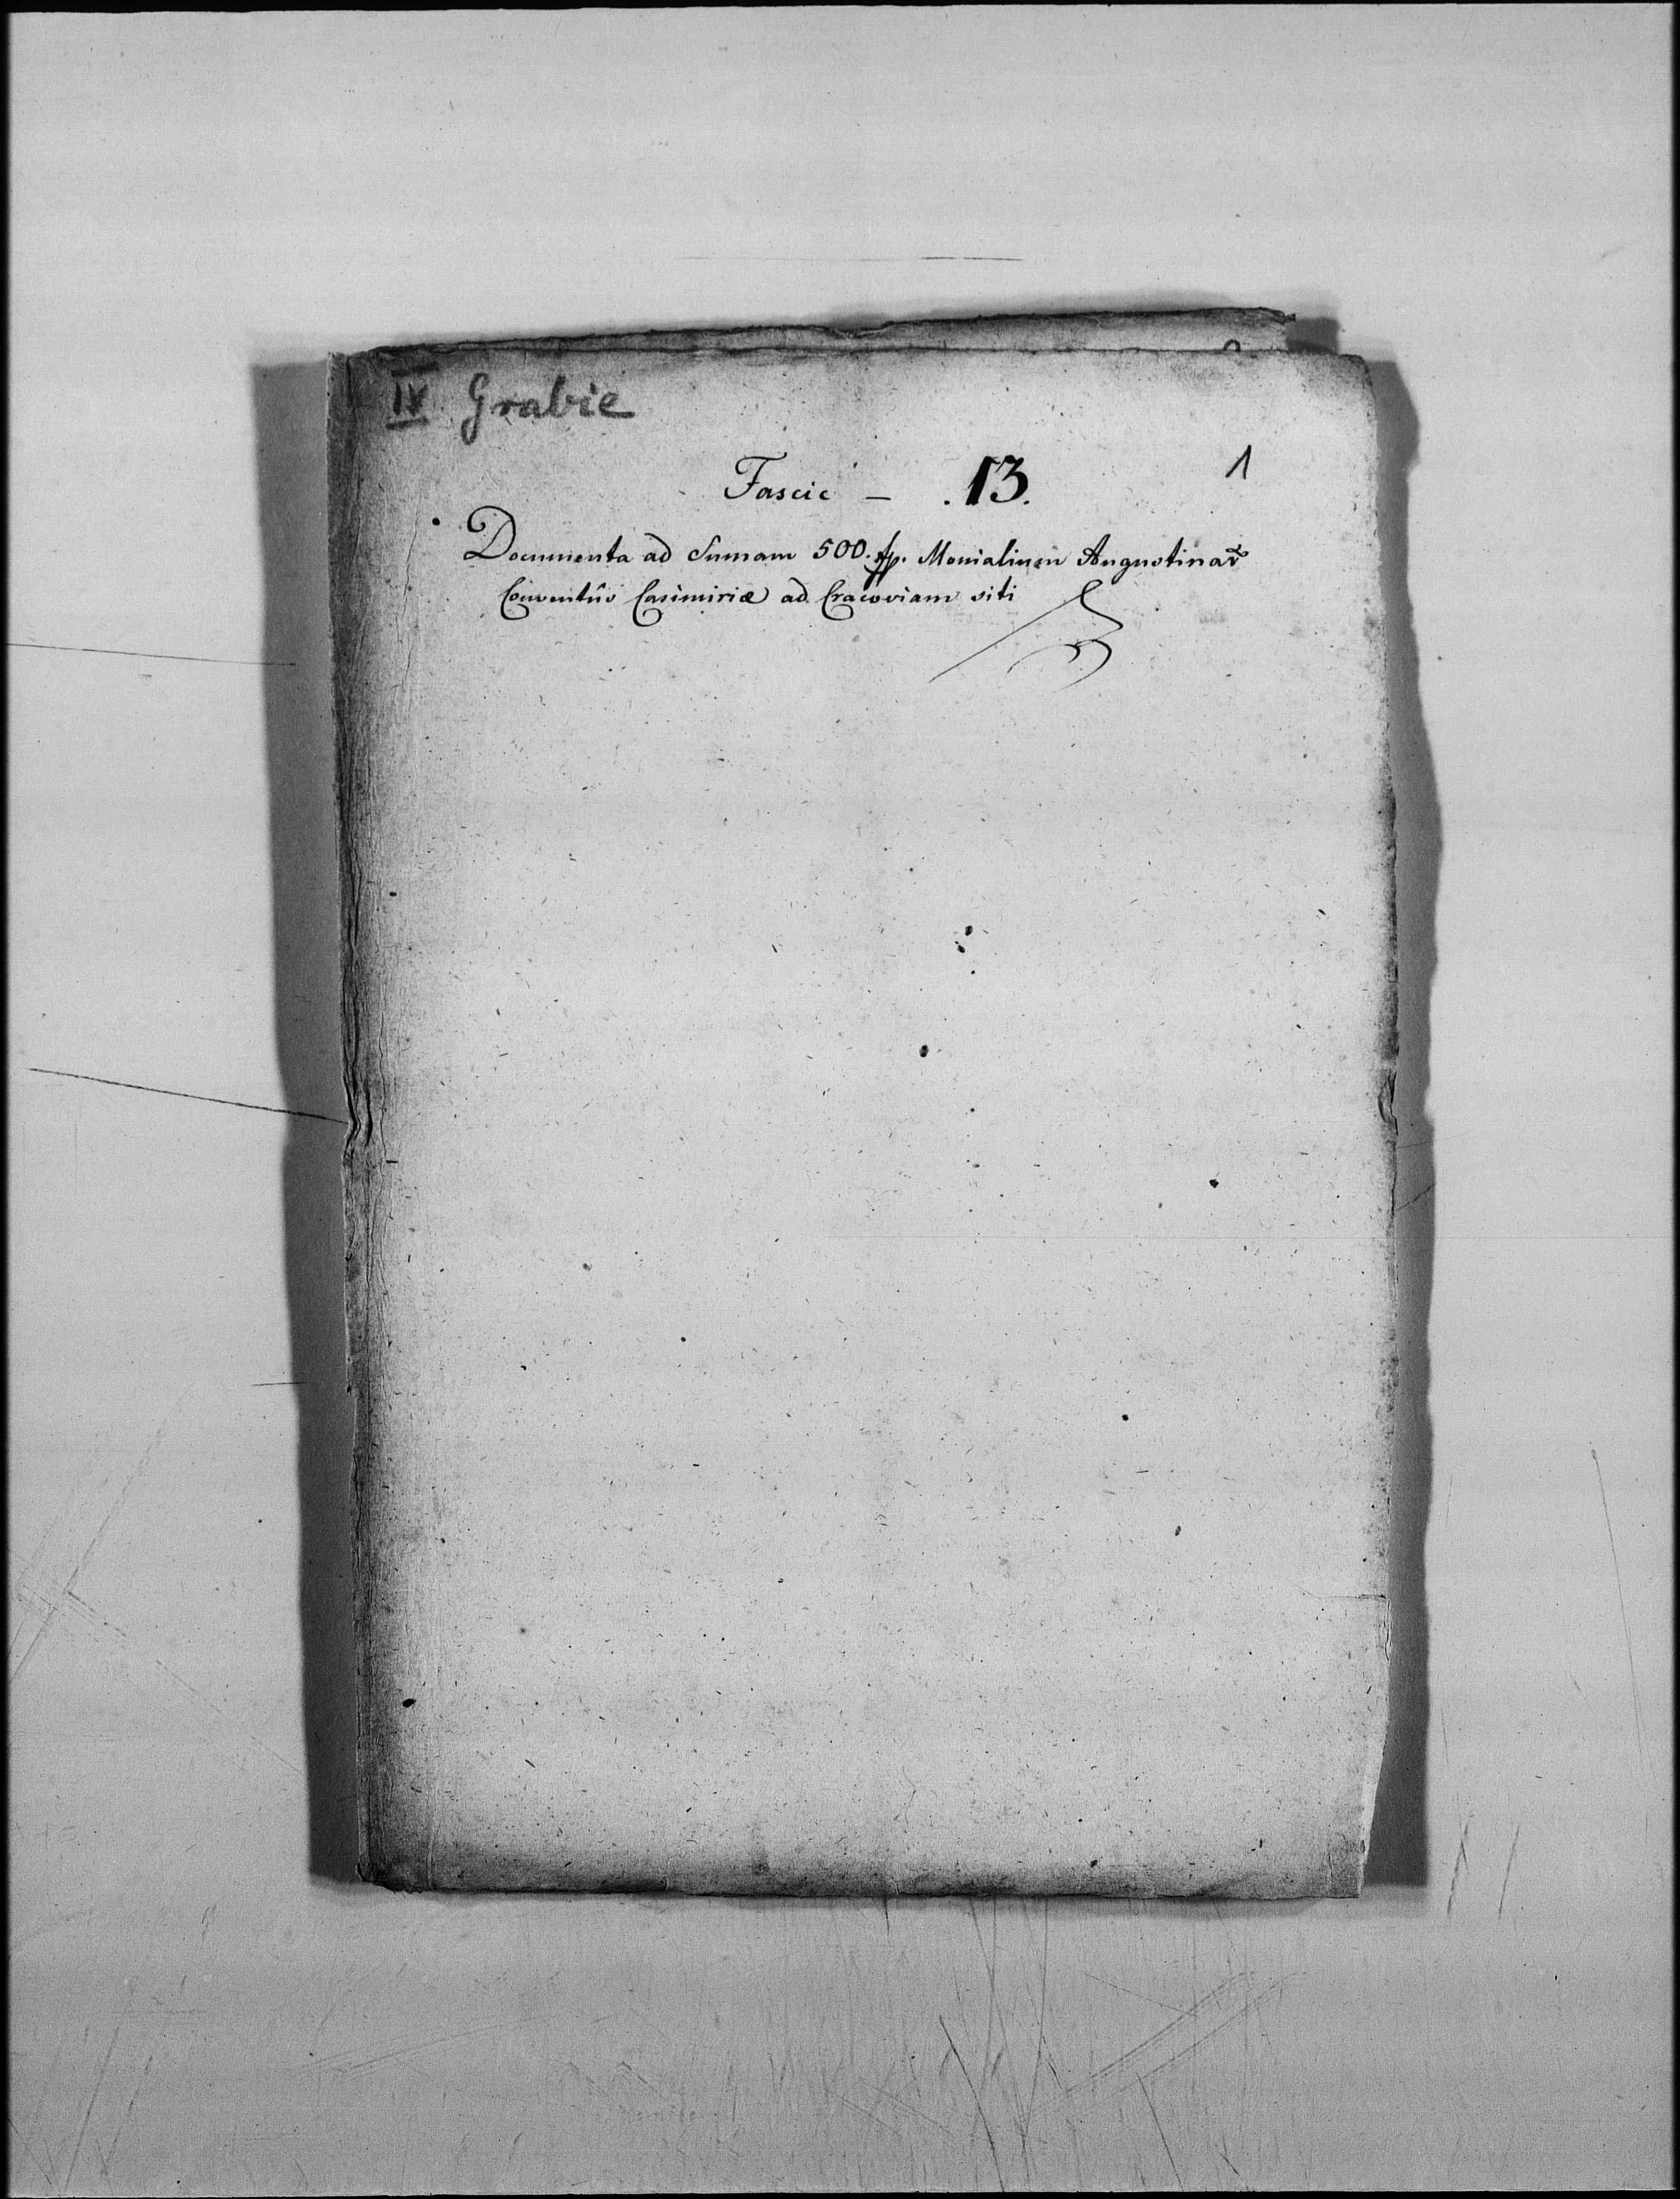 IV Grabie
1
Fascic – .13.
Documenta ad Sumam 500. fp. Monialium Augustinar
Conventûs Casimiriæ ad Cracoviam siti